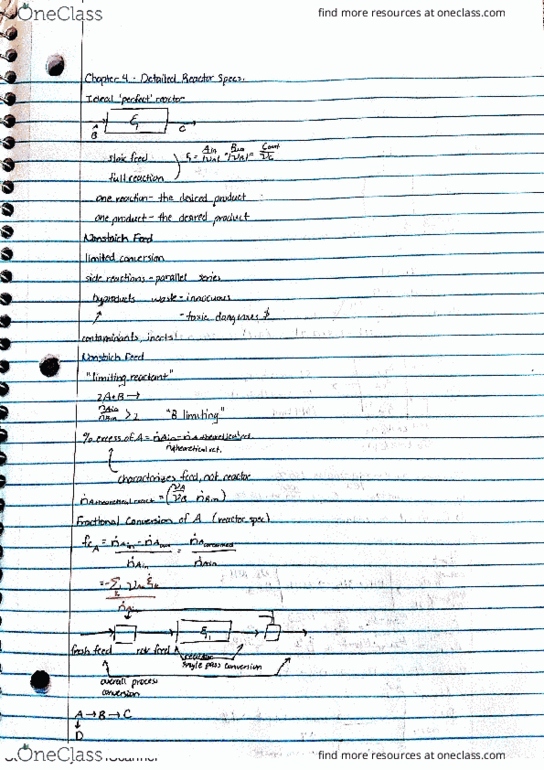 OneClass
find more resources at oneclass.com
Chapter 4 - Detailed Reactor Specs.
Ideal 'perfect' reactor
A
B
ξ₁
C
stoic feed
full reaction
one reaction - the desired product
one product - the desired product
Nonstoich Feed
limited conversion
side reactions - parallel series
byproducts waste - innocuous
- toxic dangerous $
contaminants, inerts
Nonstoich Feed
"limiting reactant"
2A+B →
ṅAin
ṅBin > 2 "B limiting"
% excess of A = ṅAin - ṅA theoretical rct.
ṅA theoretical rct.
characterizes feed, not reactor
ṅA theoretical react = (νA/νB ṅBin)
Fractional Conversion of A (reactor spec)
fcA = ṅAin - ṅAout = ṅA consumed
ṅAin ṅAin
fresh feed
reactor
single pass conversion
overall process
conversion
A → B → C
↓
D
OneClass
find more resources at oneclass.com